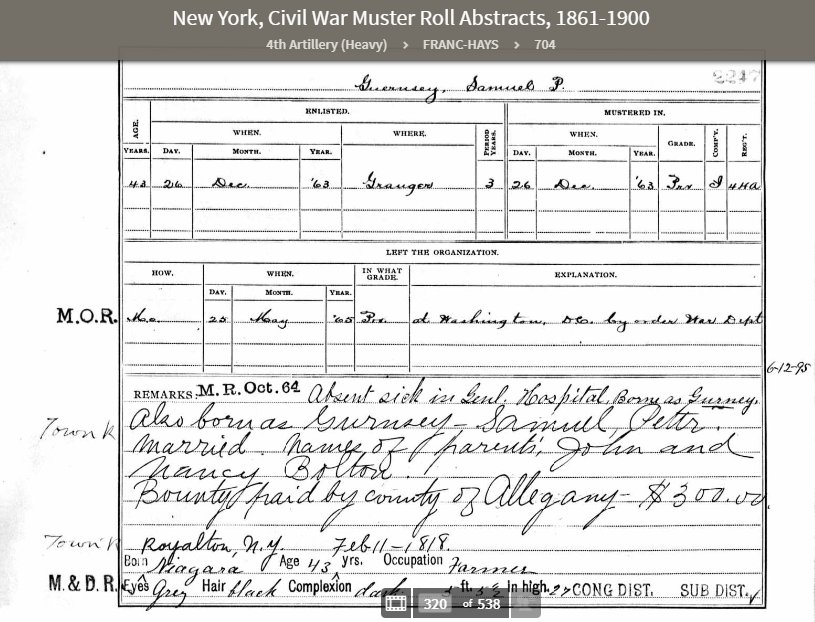 New York, Civil War Muster Roll Abstracts, 1861-1900
4th Artillery (Heavy) > FRANC-HAYS > 704
2247
Guernsey, Samuel P.
ENLISTED. MUSTERED IN.
AGE. WHEN. WHERE. PERIOD YEARS. WHEN. GRADE. COMP'Y. REG'T.
YEARS. DAY. MONTH. YEAR. DAY. MONTH. YEAR.
43 26 Dec. '63 Granger 3 26 Dec. '63 Prv I 4 HA
LEFT THE ORGANIZATION.
HOW. WHEN. IN WHAT GRADE. EXPLANATION.
DAY. MONTH. YEAR.
M.O.R. M.o. 25 May '65 Prv. at Washington, DC. by order War Dept
6-12-95
REMARKS: M.R. Oct. 64 Absent sick in Genl. Hospital. Borne as Gurney.
Town R Also born as Gurnsey - Samuel, Petr.
married. names of parents, John and
Nancy Bolton.
Bounty paid by county of Allegany - $300.00
Town R Royalton, N.Y. Feb 11 - 1818.
Born Niagara Age 43 yrs. Occupation Farmer
M. & D. R. Eyes Grey Hair black Complexion dark ft. In high. 27 CONG DIST. SUB DIST. ✓
320 of 538